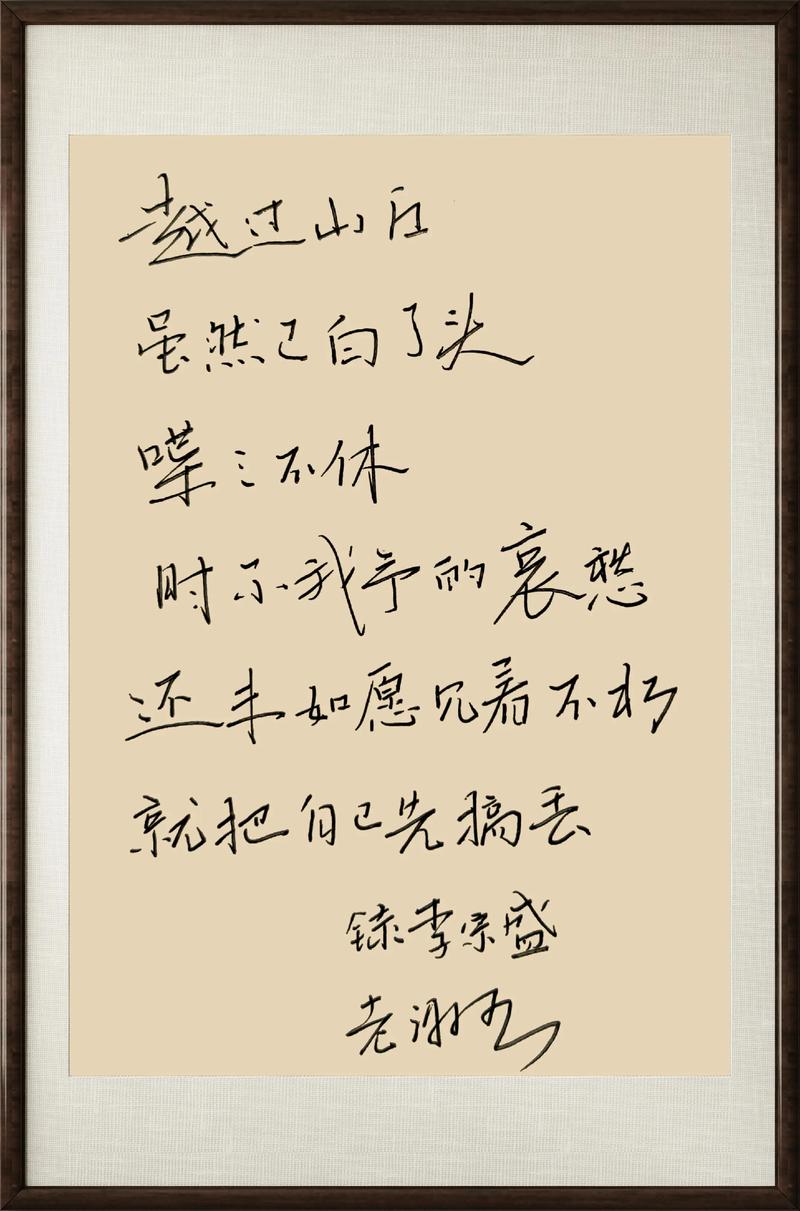 越过山丘
虽然已白了头
喋々不休
时不我予的哀愁
还未如愿见着不朽
就把自己先搞丢
録李宗盛
老谢